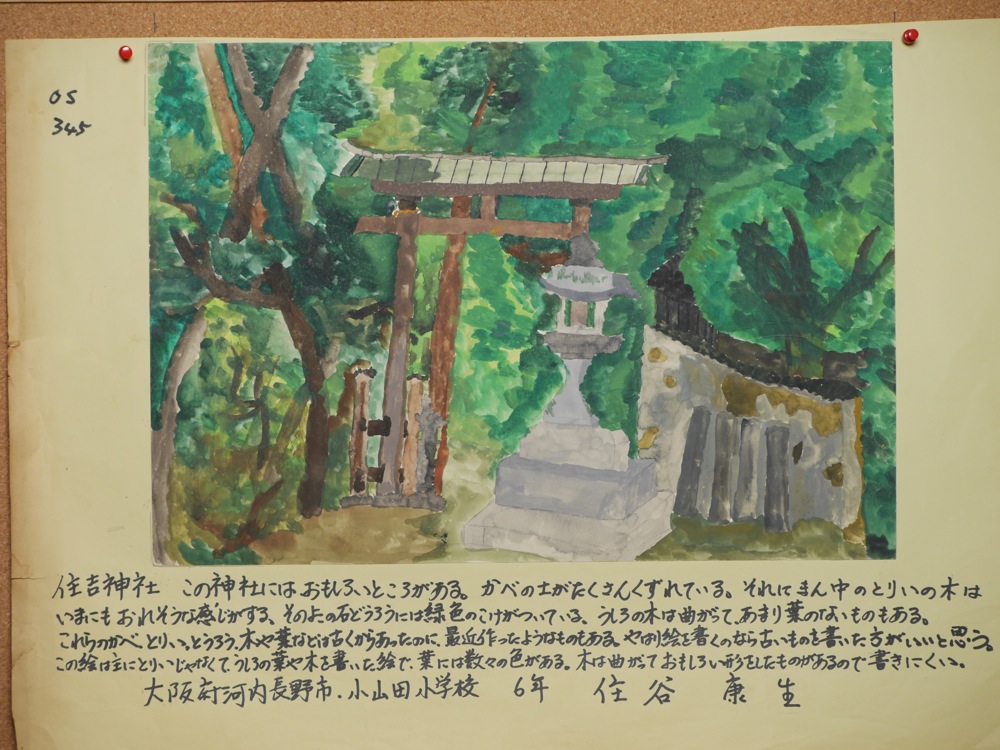 OS
345
住吉神社 この神社にはおもしろいところがある。かべの土がたくさんくずれている。それにまん中のとりいの木は
いまにもおれそうな感じがする。その上の石どうろうには緑色のこけがついている。うしろの木は曲がって、あまり葉のないものもある。
これらのかべ、とりい、とうろう、木や葉などは古くからあったのに、最近作ったようなものもある。やはり絵を書くのなら古いものを書いた方がいいと思う。
この絵は主にとりいじゃなくてうしろの葉や木を書いた絵で、葉には数々の色がある。木は曲がっておもしろい形をしたものがあるので書きにくい。
大阪府河内長野市・小山田小学校 6年 住谷 康生